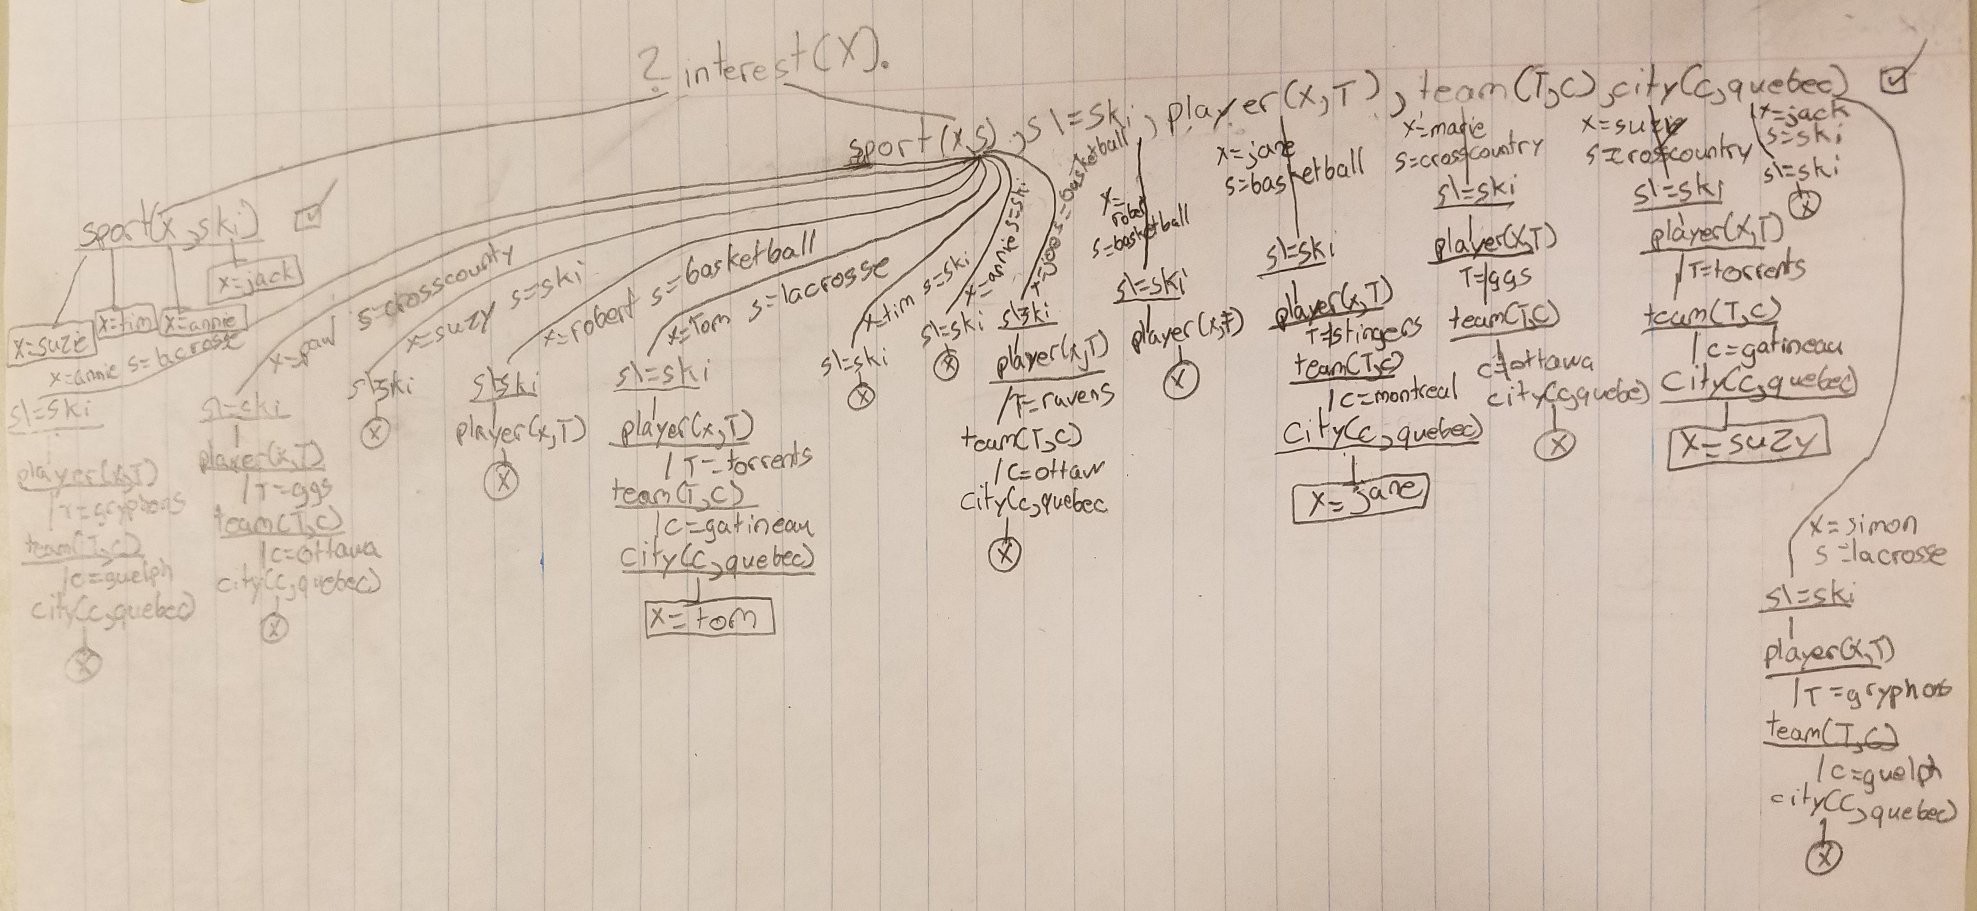 ? interest(X).
sport(x,s), s\=ski, player(x,T), team(T,C), city(C,quebec)
sport(x,ski)
x=suzie
x=tim
x=annie
x=jack
x=annie s=lacrosse
s\=ski
player(x,T)
T=gryphons
team(T,C)
C=guelph
city(C,quebec)
X
x=paul s=crosscounty
s\=ski
player(x,T)
T=ggs
team(T,C)
C=ottawa
city(C,quebec)
X
x=suzy s=ski
s\=ski
X
x=robert s=basketball
s\=ski
player(x,T)
X
x=Tom s=lacrosse
s\=ski
player(x,T)
T=torrents
team(T,C)
C=gatineau
city(C,quebec)
x=tom
x=tim s=ski
s\=ski
X
x=annie s=ski
s\=ski
X
s=basketball
s\=ski
player(x,T)
T=ravens
team(T,C)
C=ottaw
city(C,quebec
X
x=
robert
s=basketball
s\=ski
player(x,T)
X
x=jane
s=basketball
s\=ski
player(x,T)
T=stingers
team(T,C)
C=montreal
city(C,quebec)
x=jane
x=marie
s=crosscountry
s\=ski
player(X,T)
T=ggs
team(T,C)
C=ottawa
city(C,quebec)
X
x=suzy
s=croscountry
s\=ski
player(x,T)
T=torrents
team(T,C)
C=gatineau
city(C,quebec)
x=suzy
x=jack
s=ski
s\=ski
X
x=simon
s=lacrosse
s\=ski
player(x,T)
T=gryphons
team(T,C)
C=guelph
city(C,quebec)
X